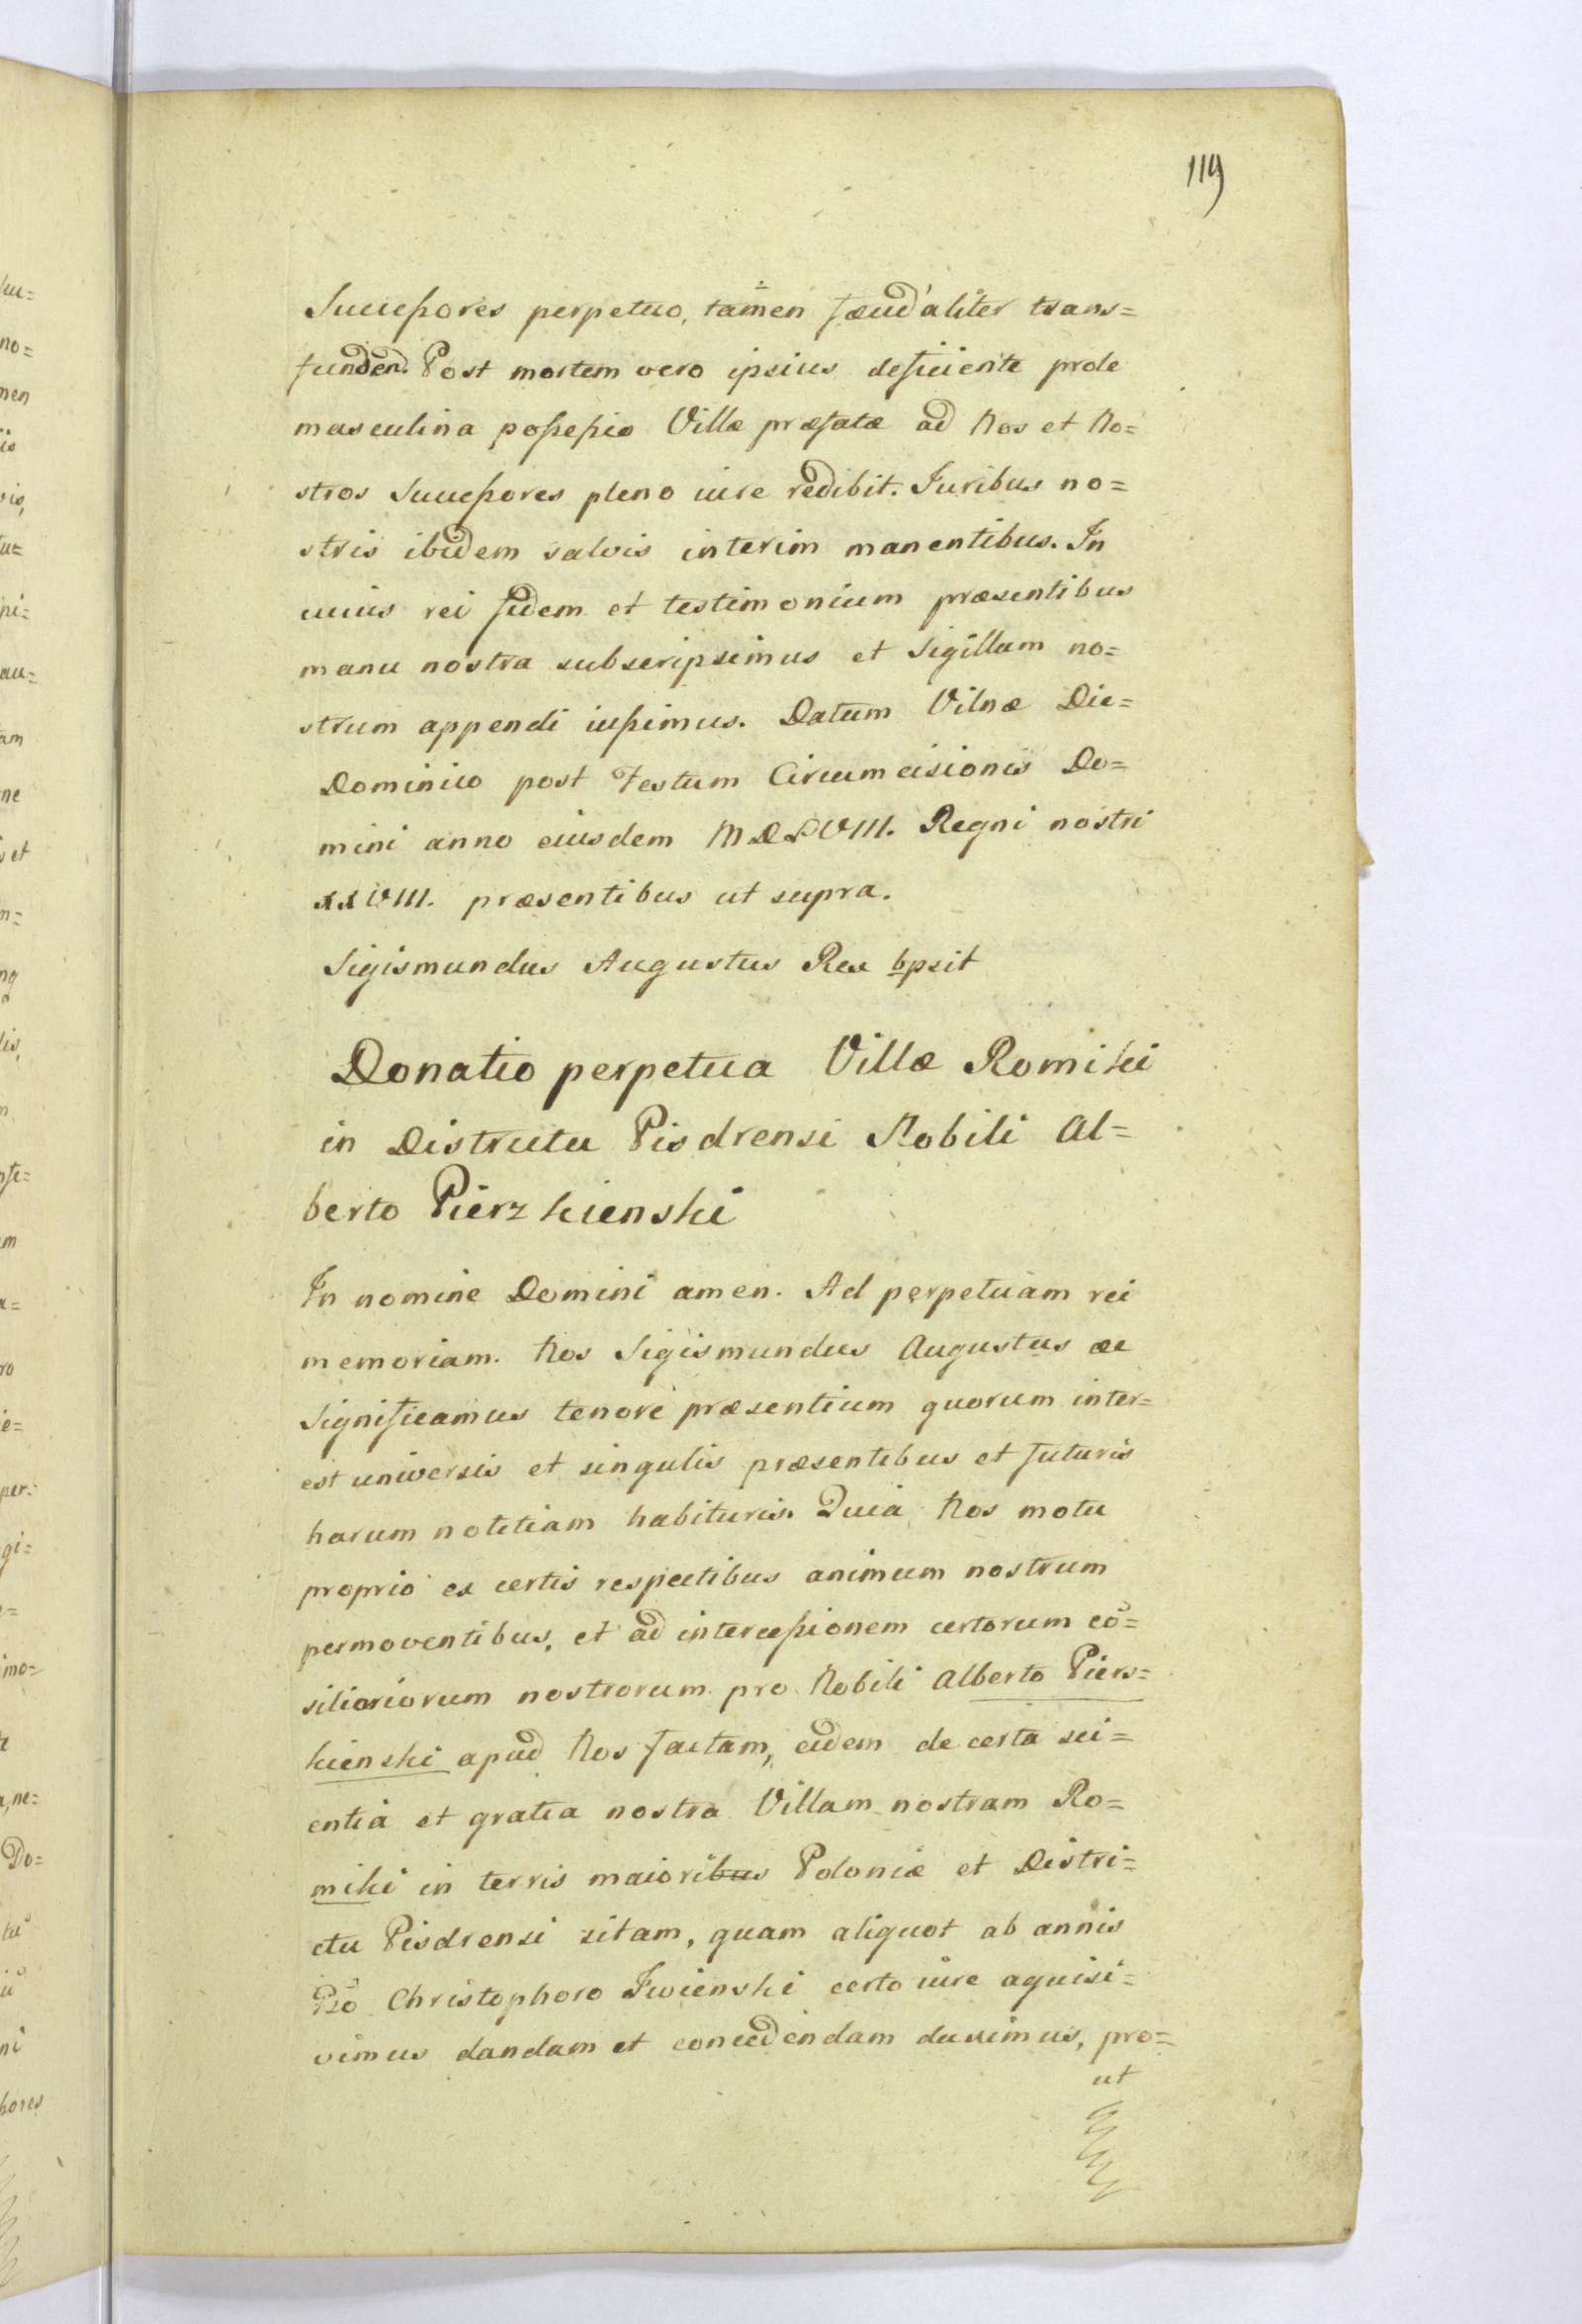 119
Succeßores perpetuo, tam̃en fæudaliter trans=
funden. Post mortem vero ipsius deficiente prole
masculina poßeßio Villæ præfatæ ad Nos et No=
stros Succeßores pleno iure redibit. Iuribus no=
stris ibidem salvis interim manentibus. In
cuius rei fidem et testimonium præsentibus
manu nostra subscripsimus et Sigillum no=
strum appendi iußimus. Datum Vilnæ Die=
Dominico post Festum Circumcisionis Do=
mini anno eiusdem MDLVIII. Regni nostri
XXVIII. præsentibus ut supra.
Sigismundus Augustus Rex bpsit
Donatio perpetua Villæ Romiki
in Districtu Pisdrensi Nobili Al=
berto Pierzkienski
In nomine Domini amen. Ad perpetuam rei
memoriam. Nos Sigismundus Augustus æc
Significamus tenore præsentium quorum inter=
est universis et singulis præsentibus et futuris
harum notitiam habituris. Quia Nos motu
proprio ex certis respectibus animum nostrum
permoventibus, et ad interceßionem certorum cō=
siliariorum nostrorum pro Nobili Alberto Piers=
kienski apud Nos factam, eidem de certa sci=
entia et gratia nostra Villam nostram Ro=
miki in terris maioribus Poloniæ et Distri=
ctu Pisdrensi sitam, quam aliquot ab annis
Christophoro Iwienski certo iure aquisi=
vimus dandam et concedendam duximus, pro=
ut